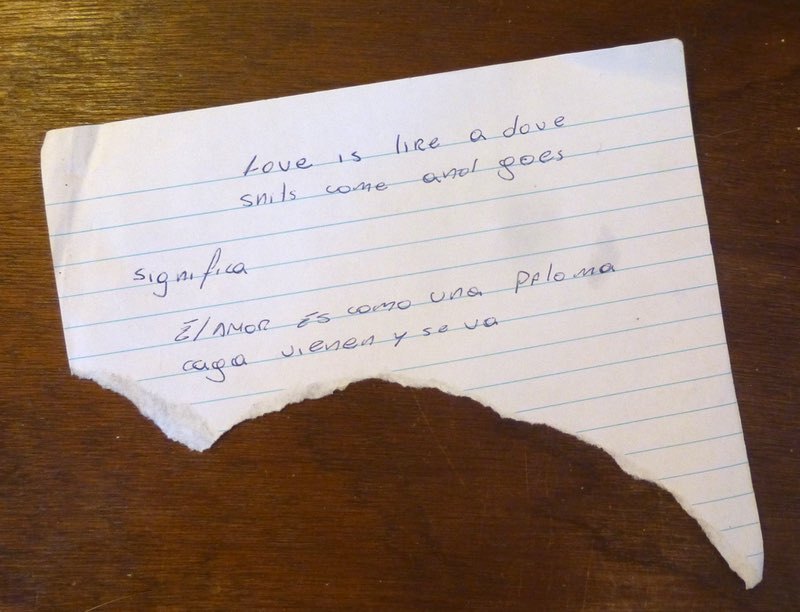 Love is like a dove
snits come and goes
significa
El AMOR Es como una paloma
caga vienen y se va